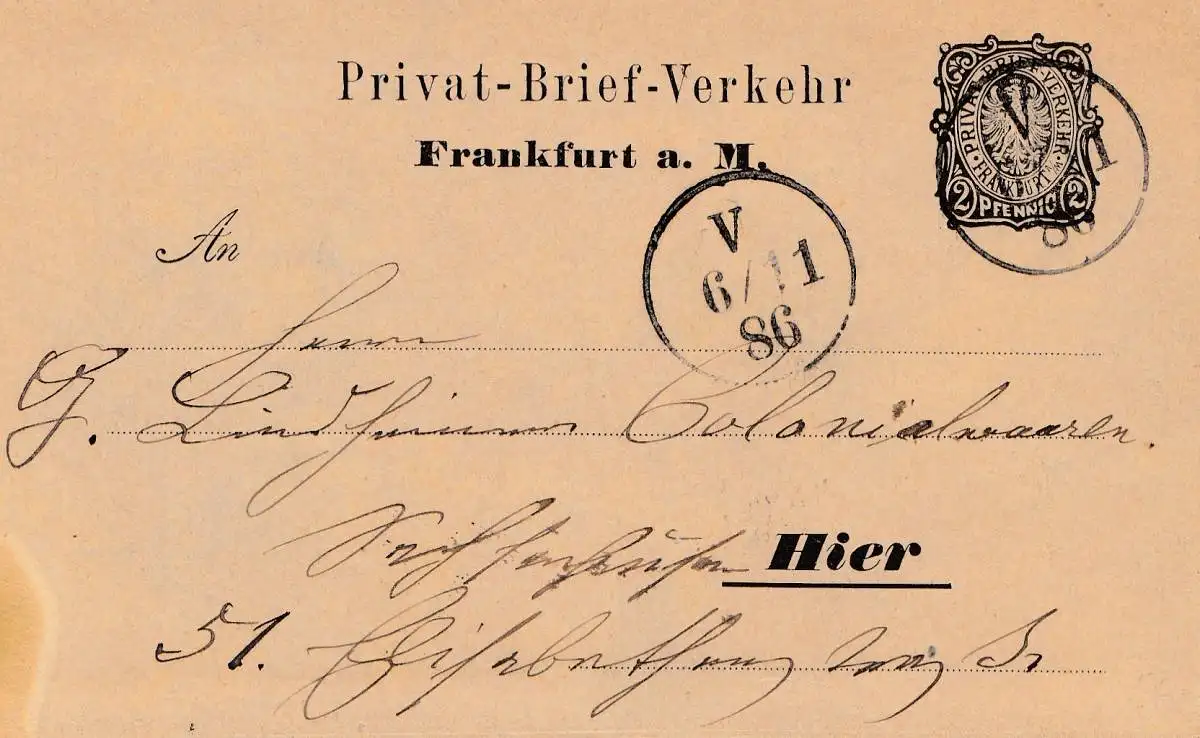 Privat-Brief-Verkehr
Frankfurt a. M.
PRIVAT-BRIEF-VERKEHR
FRANKFURT a/M
2 PFENNIG 2
V
1
86
V
6/11
86
An
Herrn
G. Lindheimer Colonialwaaren.
Sachsenhausen Hier
51. Elisabethen